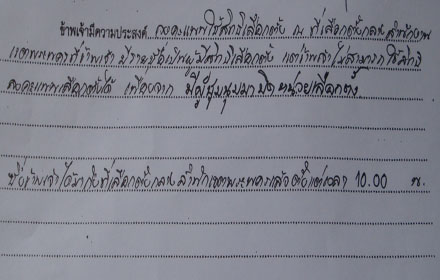 ข้าพเจ้ามีความประสงค์ ลงคะแนนใช้สิทธิเลือกตั้ง ณ ที่เลือกตั้งกลาง สำนักงาน
เขตพระนครที่ข้าพเจ้า มีรายชื่อเป็นผู้มีสิทธิเลือกตั้ง แต่ข้าพเจ้าไม่สามารถใช้สิทธิ
ลงคะแนนเลือกตั้งได้ เนื่องจาก มีผู้ชุมนุมมาปิดหน่วยเลือกตั้ง
ซึ่งข้าพเจ้าได้มาถึงที่เลือกตั้งกลาง สำนักเขตพระนครแล้ว ตั้งแต่เวลา 10.00 น.